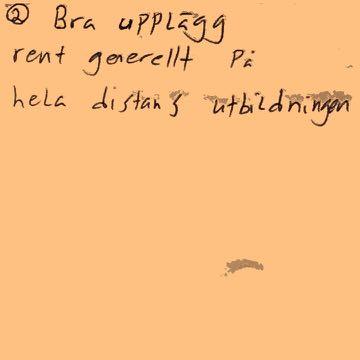 ② Bra upplägg
rent generellt På
hela distans utbildningen